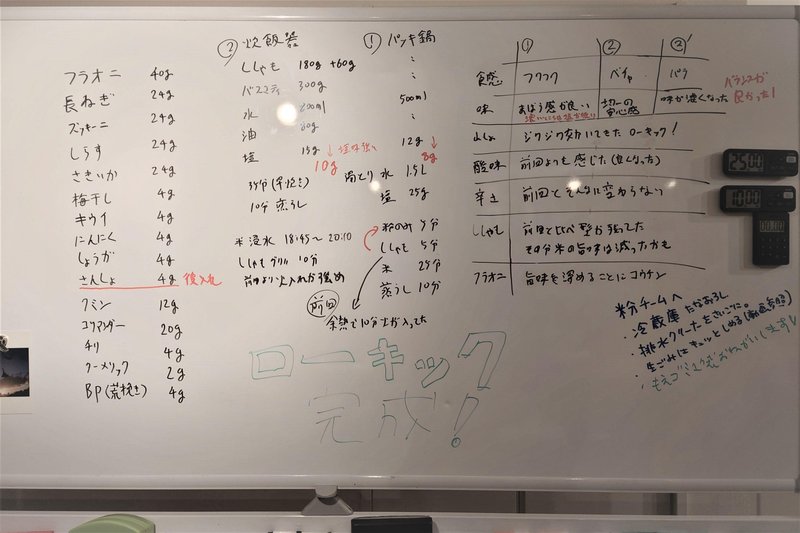 フラオニ 40g
長ねぎ 24g
ズッキーニ 24g
しらす 24g
さきいか 24g
梅干し 4g
キウイ 4g
にんにく 4g
しょうが 4g
さんしょ 4g 後入れ
クミン 12g
コリアンダー 20g
チリ 4g
ターメリック 2g
BP(荒挽き) 4g
② 炊飯器
ししゃも 180g +60g
バスマティ 300g
水
油
塩 15g → 塩味強い
10g
10分 蒸らし
米 浸水 18:45〜20:10
ししゃも グリル 10分
前回より火入れが強め
前回
余熱で10分火が入ってた
① パッキ鍋
〃
〃
500ml
〃
12g
8g
湯とり 水 1.5L
塩 25g
米のみ 5分
ししゃも 5分
米 25分
蒸らし 10分
① ② ③'
食感 フワフワ ベチャ パラ
味 まとまり感が良い 安心感 味が濃くなった
バランスが良かった!
山しょ ジワジワ効いてきた ローキック!
酸味 前回よりも感じた(良くなった)
辛さ 前回とそんなに変わらない
ししゃも 前回と比べ型が残ってた
その分米の旨味は減ったかも
フラオニ 旨味を深めることにコウケン
粉チームへ
・冷蔵庫
・排水クリーナー
・生ごみにキュッとしめる
ローキック
完成!
2500
1000
00:00